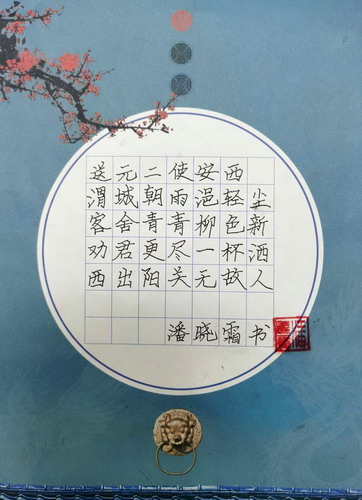 送元二使安西
渭城朝雨浥轻尘
客舍青青柳色新
劝君更尽一杯洒
西出阳关无故人
潘晓霜书